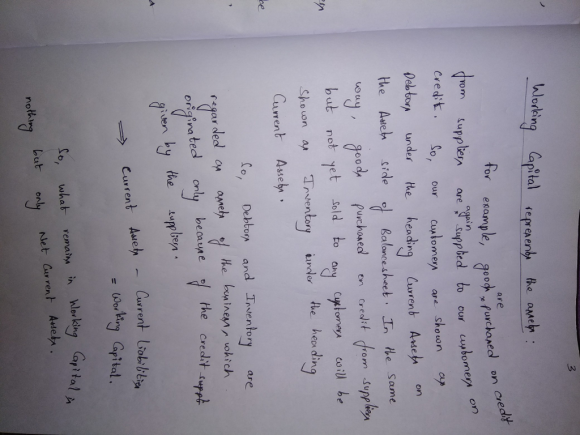 3
Working Capital represents the assets :
For example, goods are purchased on credit
from suppliers are again supplied to our customers on
credit. So, our customers are shown as
Debtors under the heading Current Assets on
the Assets side of Balancesheet. In the same
way, goods purchased on credit from suppliers
but not yet sold to any customers will be
shown as Inventory under the heading
Current Assets.
So, Debtors and Inventory are
regarded as assets of the business, which
originated only because of the credit
given by the suppliers.
⇒ Current Assets - Current liabilities
= Working Capital.
So, what remains in Working Capital is
nothing but only Net Current Assets.